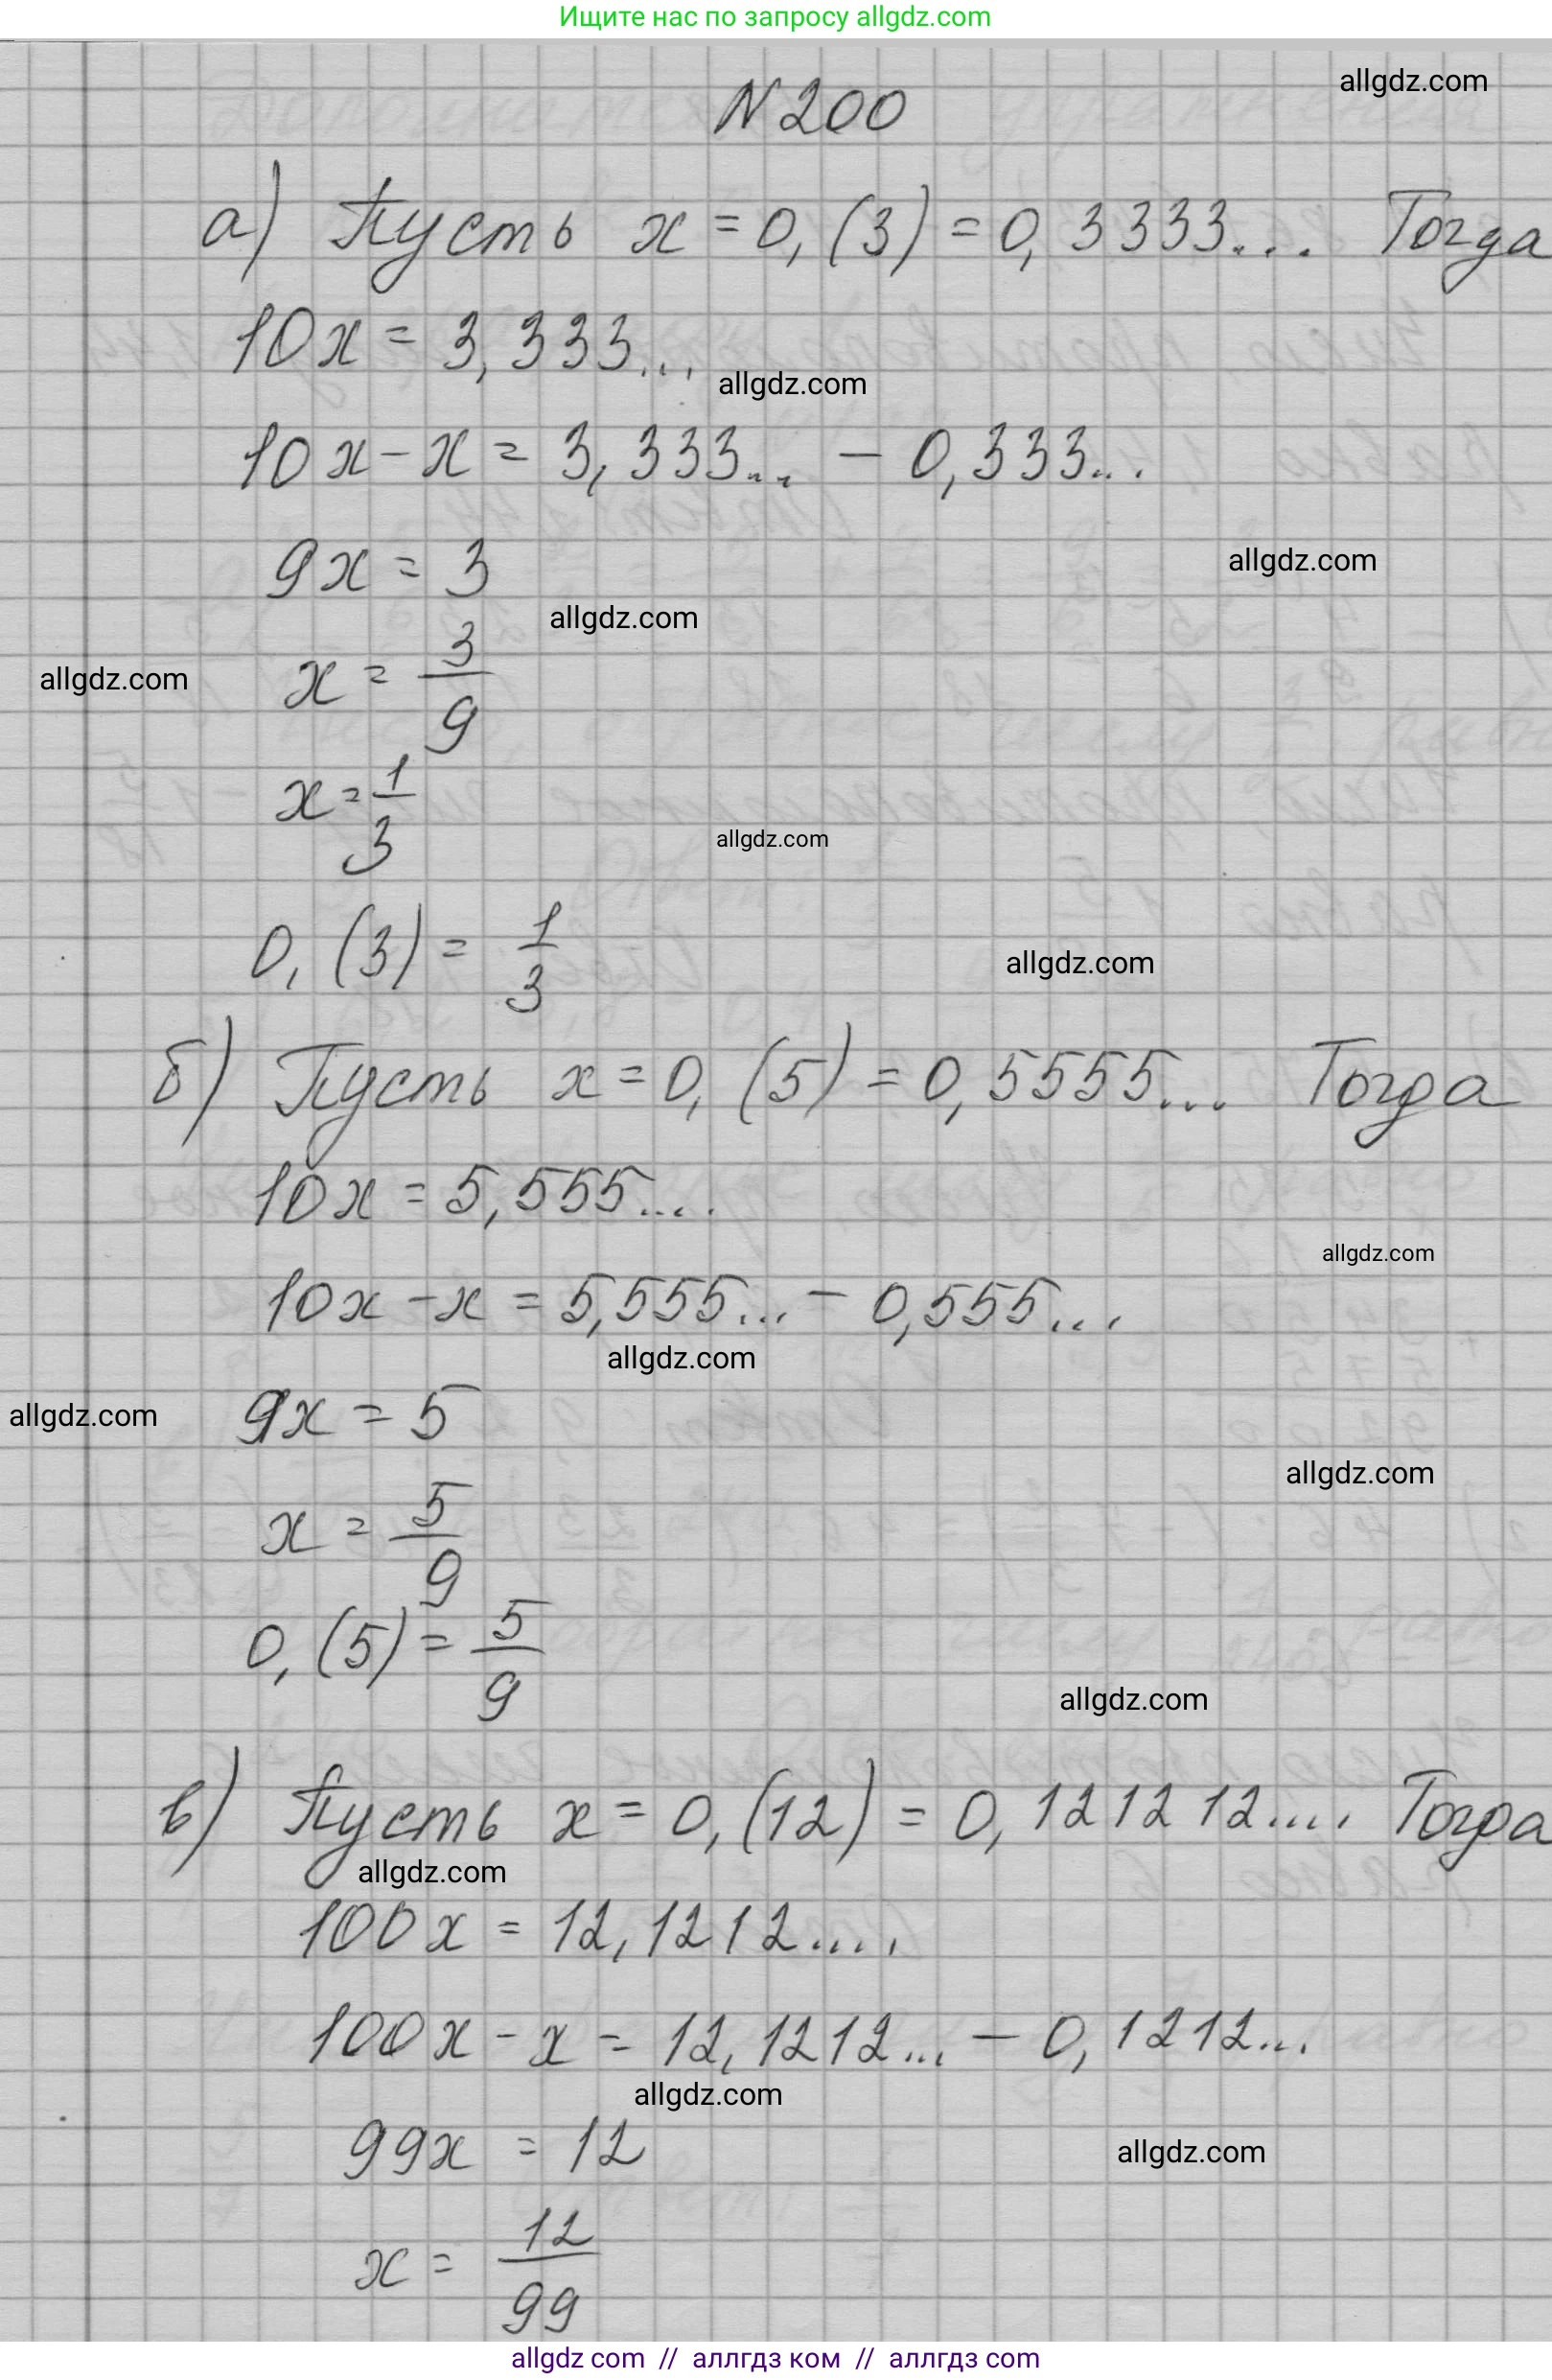 Ищите нас по запросу allgdz.com
allgdz.com
N 200
а) Пусть x = 0,(3) = 0,3333... Тогда
10x = 3,333...
allgdz.com
10x - x = 3,333... - 0,333...
9x = 3
allgdz.com
allgdz.com
x = 3/9
allgdz.com
x = 1/3
allgdz.com
0,(3) = 1/3
allgdz.com
б) Пусть x = 0,(5) = 0,5555... Тогда
10x = 5,555....
allgdz.com
10x - x = 5,555... - 0,555...
allgdz.com
9x = 5
allgdz.com
allgdz.com
x = 5/9
0,(5) = 5/9
allgdz.com
в) Пусть x = 0,(12) = 0,121212.... Тогда
allgdz.com
100x = 12,1212....
100x - x = 12,1212... - 0,1212...
allgdz.com
99x = 12
allgdz.com
x = 12/99
allgdz com // аллгдз ком // аллгдз com